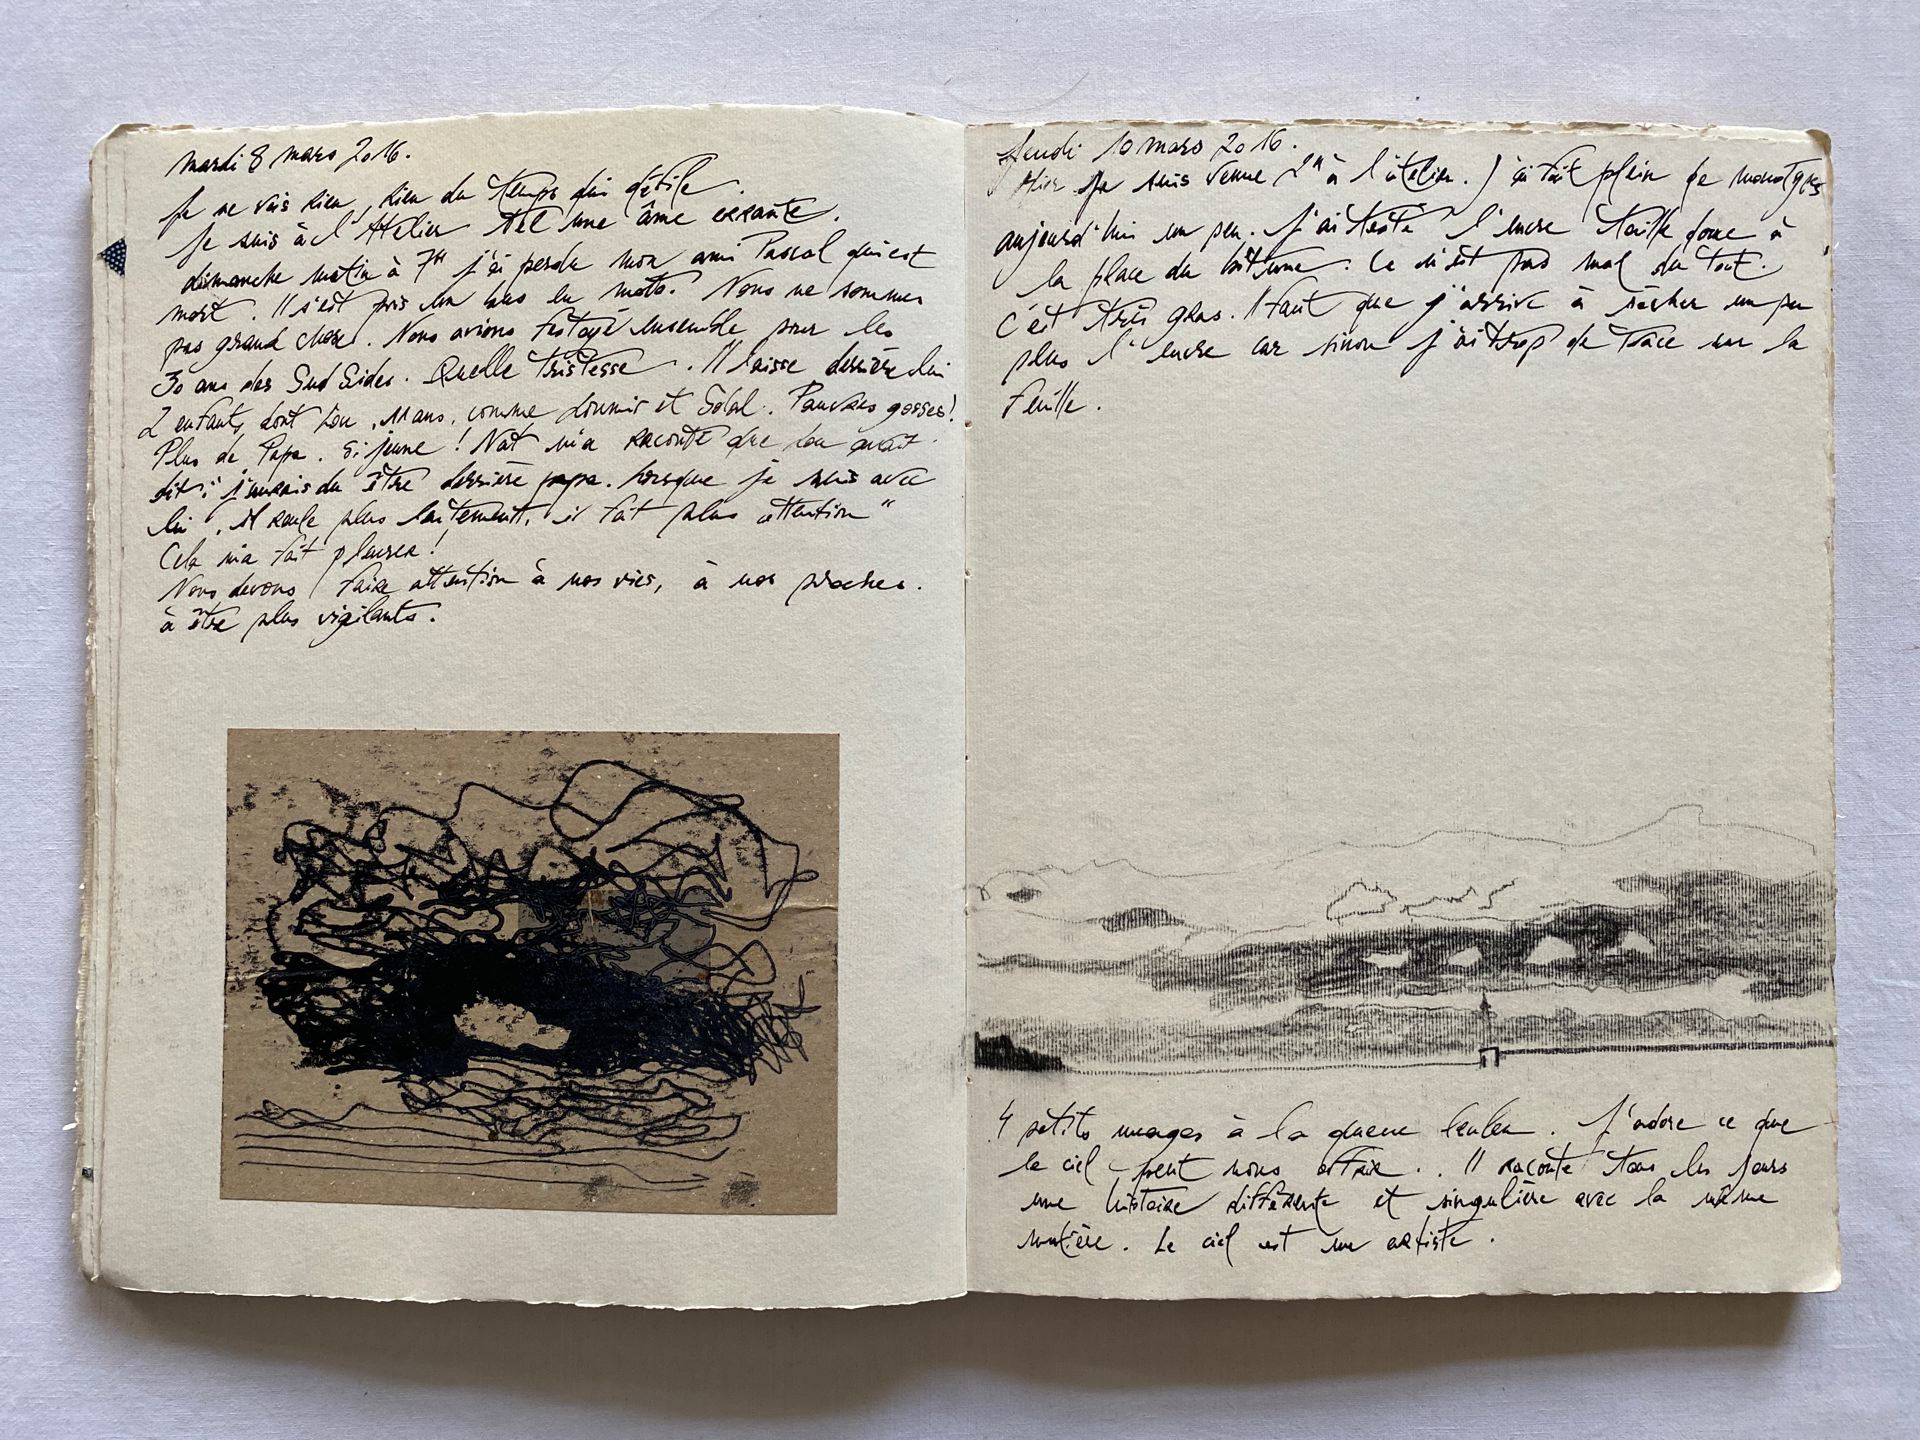 mardi 8 mars 2016.
Je ne vois rien, rien du temps qui défile.
Je suis à l'Atelier tel une âme errante.
dimanche matin à 7H j'ai perdu mon ami Pascal qui est
mort. Il s'est pris un bus en moto. Nous ne sommes
pas grand chose. Nous avions festoyé ensemble pour les
30 ans des Sud Sides. Quelle tristesse. Il laisse derrière lui
2 enfants dont Lou, 11 ans, comme et Solal. Pauvres gosses!
Plus de Papa. Si jeune! Nat m'a raconté que Lou avait
dit : " j'aurais du être derrière papa. Lorsque je suis avec
lui, il roule plus lentement, il fait plus attention "
Cela m'a fait pleurer!
Nous devons faire attention à nos vies, à nos proches.
à être plus vigilants.
Jeudi 10 mars 2016.
Hier je suis venue 2H à l'atelier. J'ai fait plein de monotypes
aujourd'hui un peu. J'ai testé l'encre taille douce à
la place du bitume. Ce n'est pas mal du tout.
C'est très gras. Il faut que j'arrive à sécher un peu
plus l'encre car sinon j'ai trop de trace sur la
feuille.
4 petits nuages à la queue leuleu. J'adore ce que
le ciel peut nous offrir.. Il raconte tous les jours
une histoire différente et singulière avec la même
matière. Le ciel est un artiste.